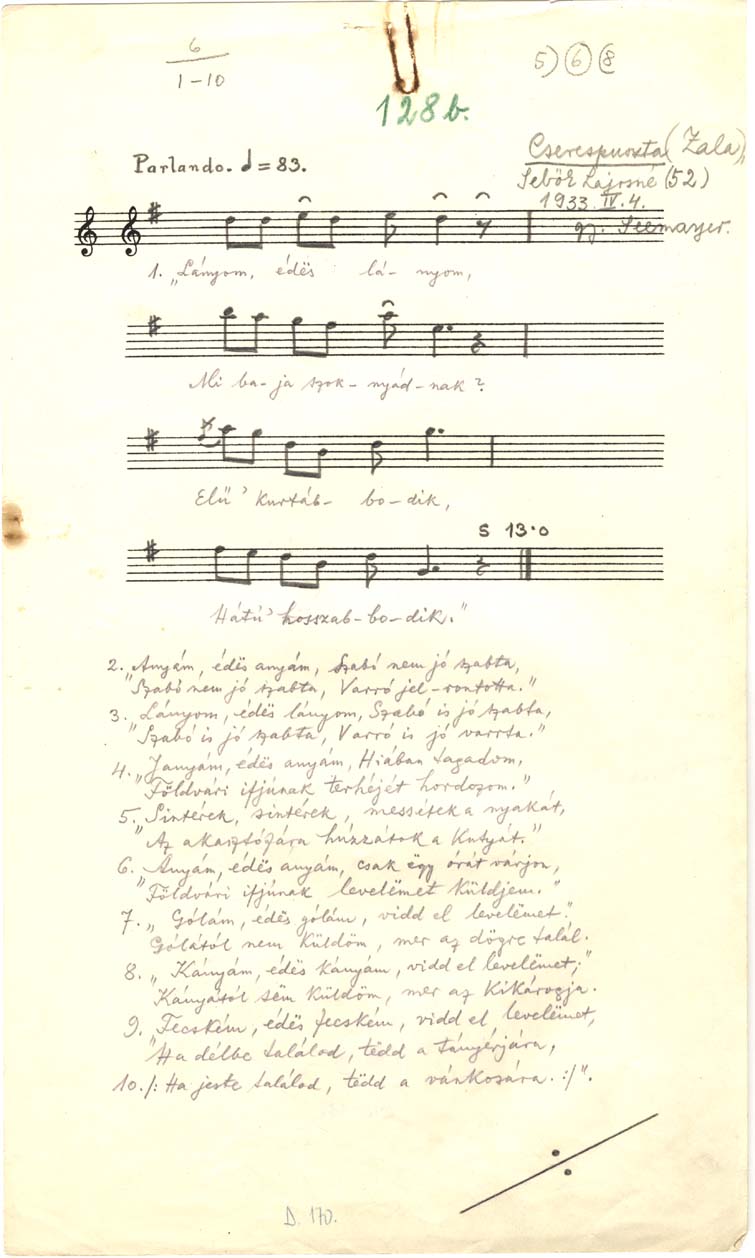 6
1-10
5) 6 8
128b.
Parlando. ♩ = 83.
Cserespuszta (Zala),
Sebők Lajosné (52)
1933. IV. 4.
gy. Seemayer.
1. „Lányom, édës lá- nyom,
Mi ba-ja szok- nyád-nak?
Elü' kurtáb- bo-dik,
S 13·0
Hátú' hosszab-bo-dik."
2. „Anyám, édës anyám, Szabó nem jó szabta,
"Szabó nem jó szabta, Varró jel-rontotta."
3. „Lányom, édës lányom, Szabó is jó szabta,
"Szabó is jó szabta, Varró is jó varrta."
4. „Janyám, édës anyám, Hiában tagadom,
"Földvári ifjúnak terhéjét hordozom."
5. „Sintérek, sintérek, messétek a nyakát,
"Az akasztófára húzzátok a Kutyát."
6. „Anyám, édës anyám, csak ëgy órát várjon,
"Földvári ifjúnak levelëmet küldjem."
7. „Gólám, édës gólám, vidd el levelëmet."
Gólától nem küldöm, mer az dögre talál.
8. „Kányám, édës kányám, vidd el levelëmet;"
Kányától sëm küldöm, mer az kikárogja.
9. „Fecském, édës fecském, vidd el levelëmet,
"Ha délbe találod, tëdd a tányérjára,
10. /: Ha jeste találod, tëdd a vánkosára. :/".
D. 170.